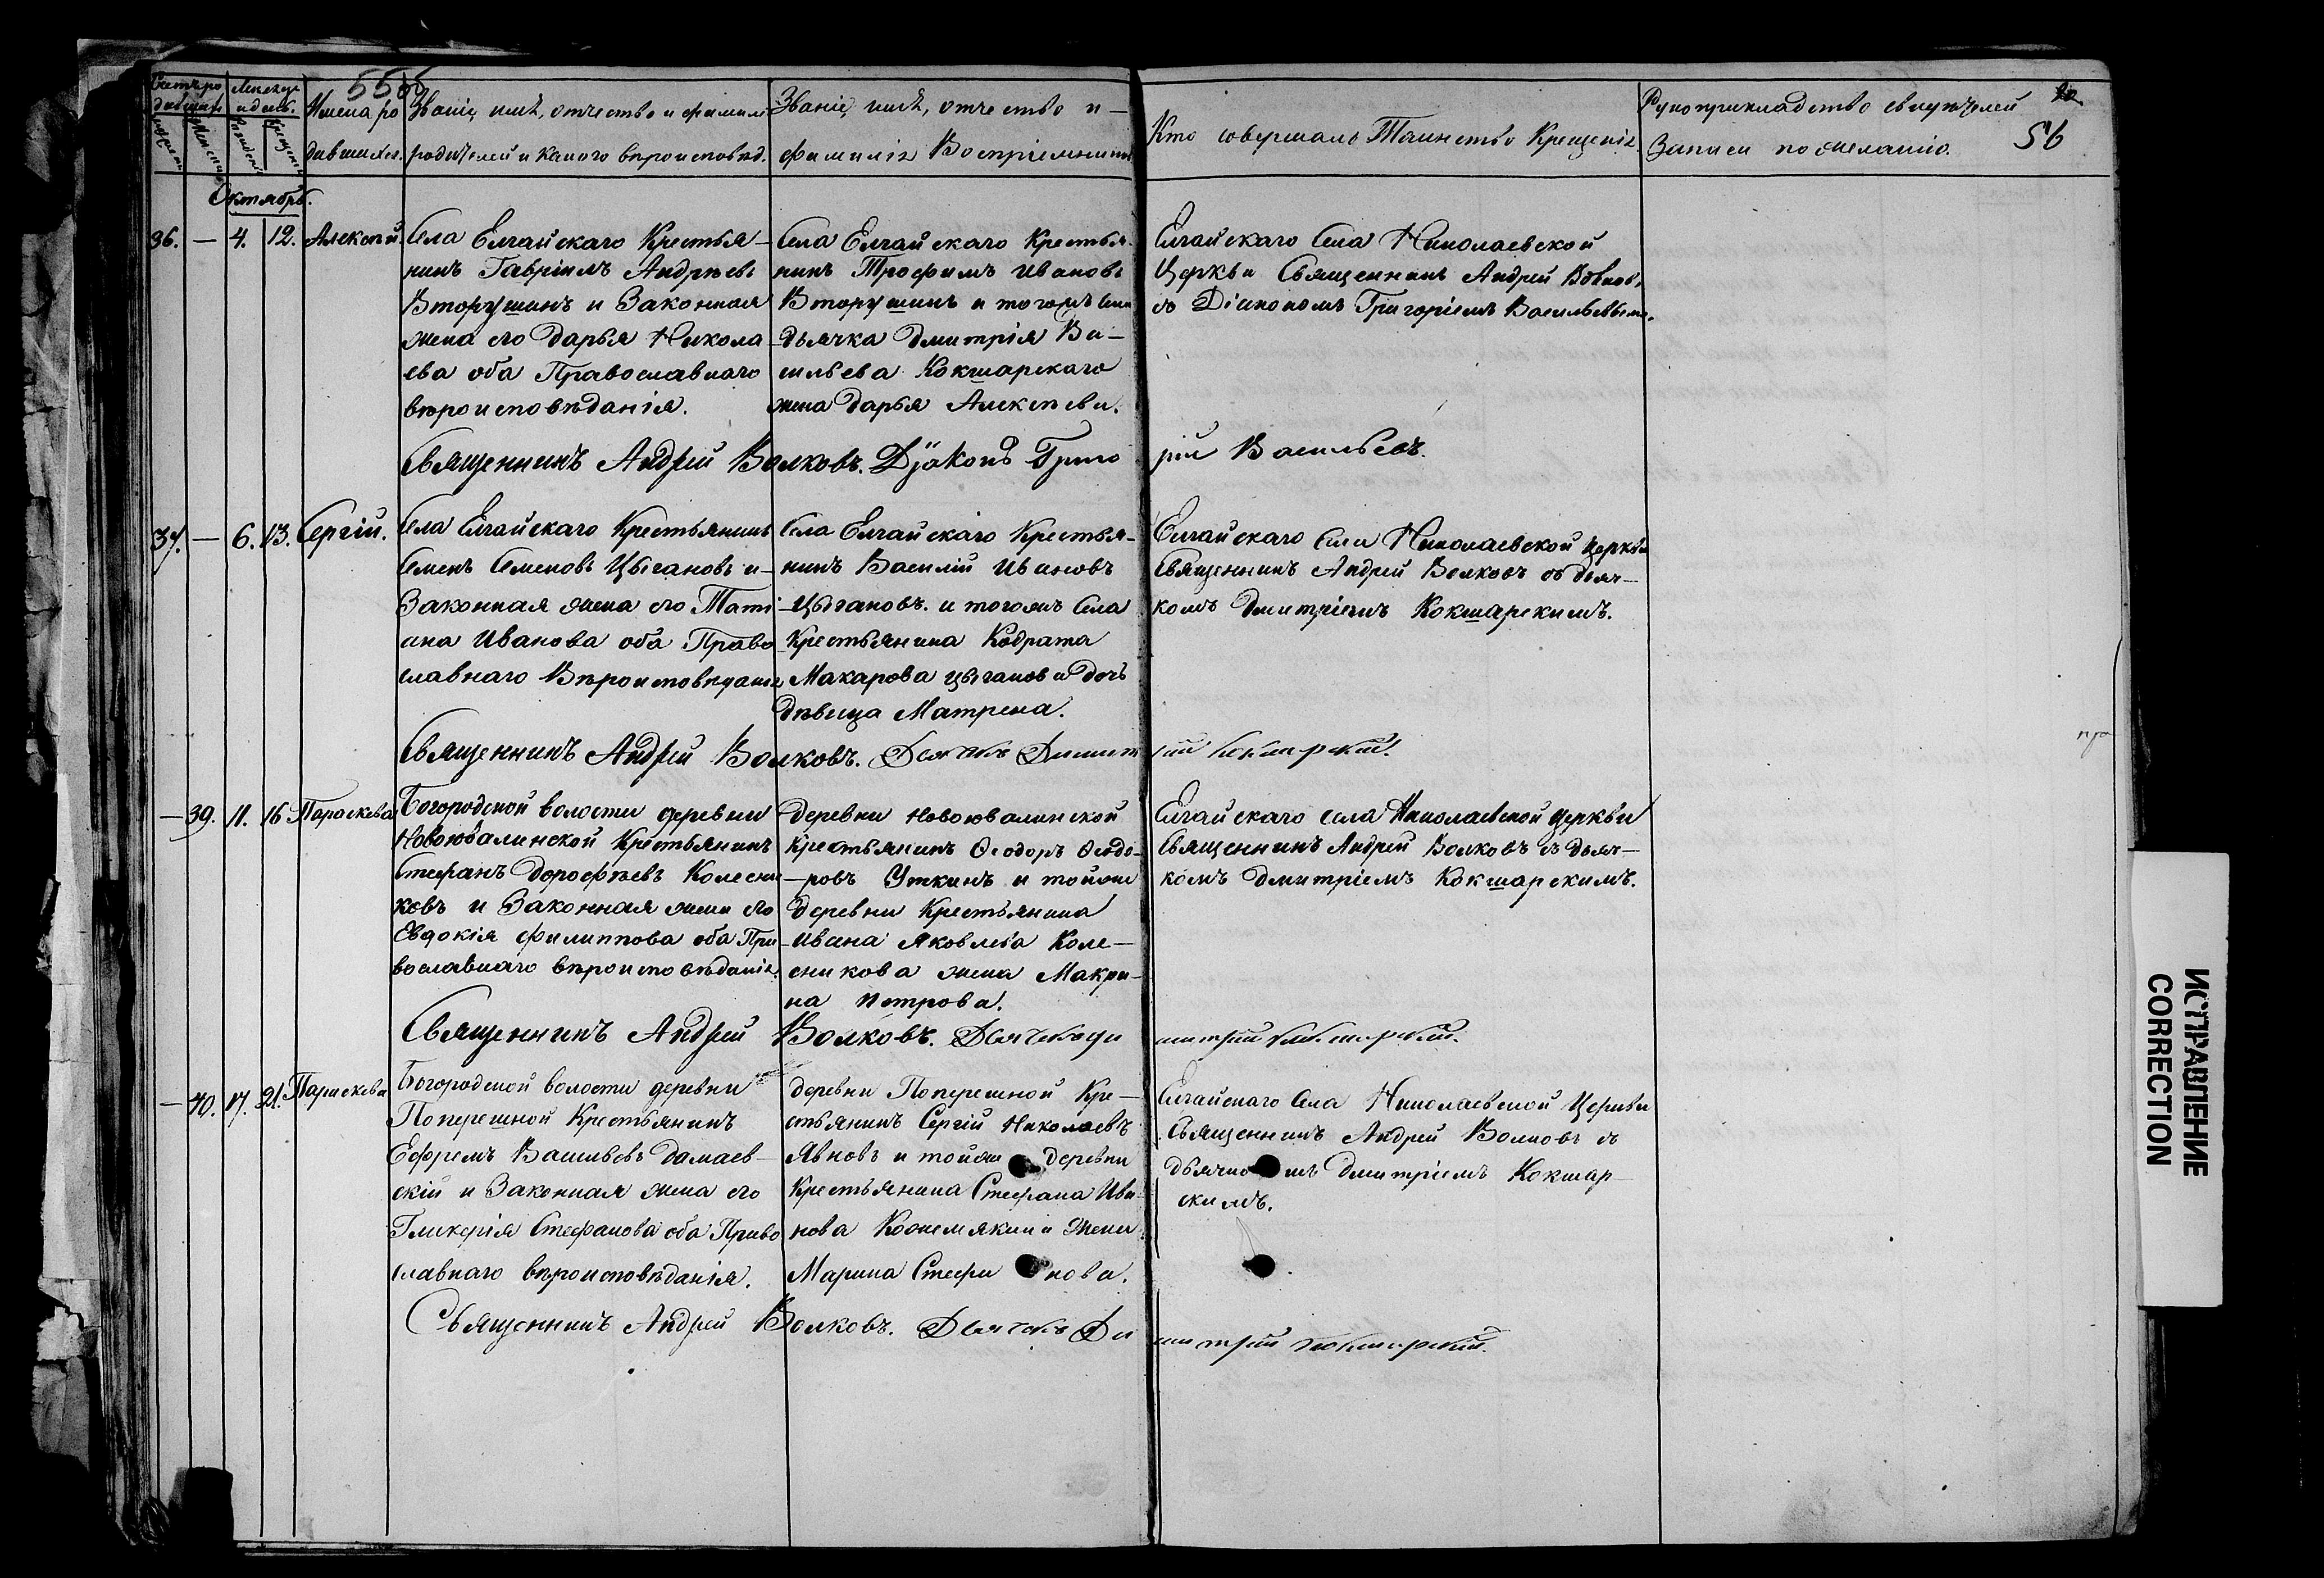 55об
Счетъ ро
дившихся
Месяцъ
и день.
Имена ро
дившихся.
Званіе, имя, отчество и фамилія
родителей и какого вѣроисповѣд.
Званіе, имя, отчество и —
фамилія Воспріемниковъ
Кто совершалъ Таинство Крещенія.
Рукоприкладство свидѣтелей
Записи по желанію.
56
Октябрь.
36. — 4. 12. Алексѣй.
Села Елгайскаго Крестья—
нинъ Гавріилъ Андреевъ
Вторушинъ и Законная
жена его Дарья Никола
ева оба Православнаго
вѣроисповѣданія.
Села Елгайскаго Крестья—
нинъ Трофимъ Ивановъ
Вторушинъ и тогожъ Села
дьячка Дмитрія Ва—
сильева Кокшарскаго
жена Дарья Алексѣева.
Елгайскаго Села Николаевской
Церкви Священникъ Андрей Волковъ
съ Діакономъ Григоріемъ Васильевымъ.
Священникъ Андрей Волковъ. Діаконъ Григо
рій Васильевъ.
37. — 6. 13. Сергій.
Села Елгайскаго Крестьянинъ
Семенъ Семеновъ Цыгановъ и—
Законная жена его Тати
ана Иванова оба Право
славнаго Вѣроисповѣданія
Села Елгайскаго Крестья—
нинъ Василій Ивановъ
Цыгановъ. и тогожъ Села
Крестьянина Кодрата
Макарова Цыганова дочь
дѣвица Матрена.
Елгайскаго Села Николаевской Церкви
Священникъ Андрей Волковъ съ дьяч—
комъ Дмитріемъ Кокшарскимъ.
Священникъ Андрей Волковъ. Дьячекъ Димит
рій Кокшарскій.
— 39. 11. 16 Параскева
Богородской волости деревни
Новоювалинской Крестьянинъ
Стефанъ Дорофѣевъ Колесни
ковъ и Законная жена его
Евдокія Филиппова оба Пра
вославнаго вѣроисповѣданія.
Деревни Новоювалинской
Крестьянинъ Ѳеодоръ Ѳеодо—
ровъ Уткинъ и тойже
деревни Крестьянина
Ивана Яковлева Коле—
сникова жена Макри—
на Петрова.
Елгайскаго села Николаевской Церкви
Священникъ Андрей Волковъ съ дьяч—
комъ Дмитріемъ Кокшарскимъ.
Священникъ Андрей Волковъ. Дьячекъ Ди
митрій Кокшарскій.
— 40. 17. 21. Параскева
Богородской волости деревни
Поперешной Крестьянинъ
Ефремъ Васильевъ Далаев—
скій и Законная жена его
Гликерія Стефанова оба Право
славнаго вѣроисповѣданія.
деревни Поперешной Кре—
стьянинъ Сергій Николаевъ
Явновъ и тойже деревни
Крестьянина Стефана Ива
нова Кожемякина Жена
Марина Стефанова.
Елгайскаго Села Николаевской Церкви
Священникъ Андрей Волковъ съ
дьячкомъ Дмитріемъ Кокшар—
скимъ.
Священникъ Андрей Волковъ. Дьячекъ Ди
митрій Кокшарскій.
ИСПРАВЛЕНИЕ
CORRECTION